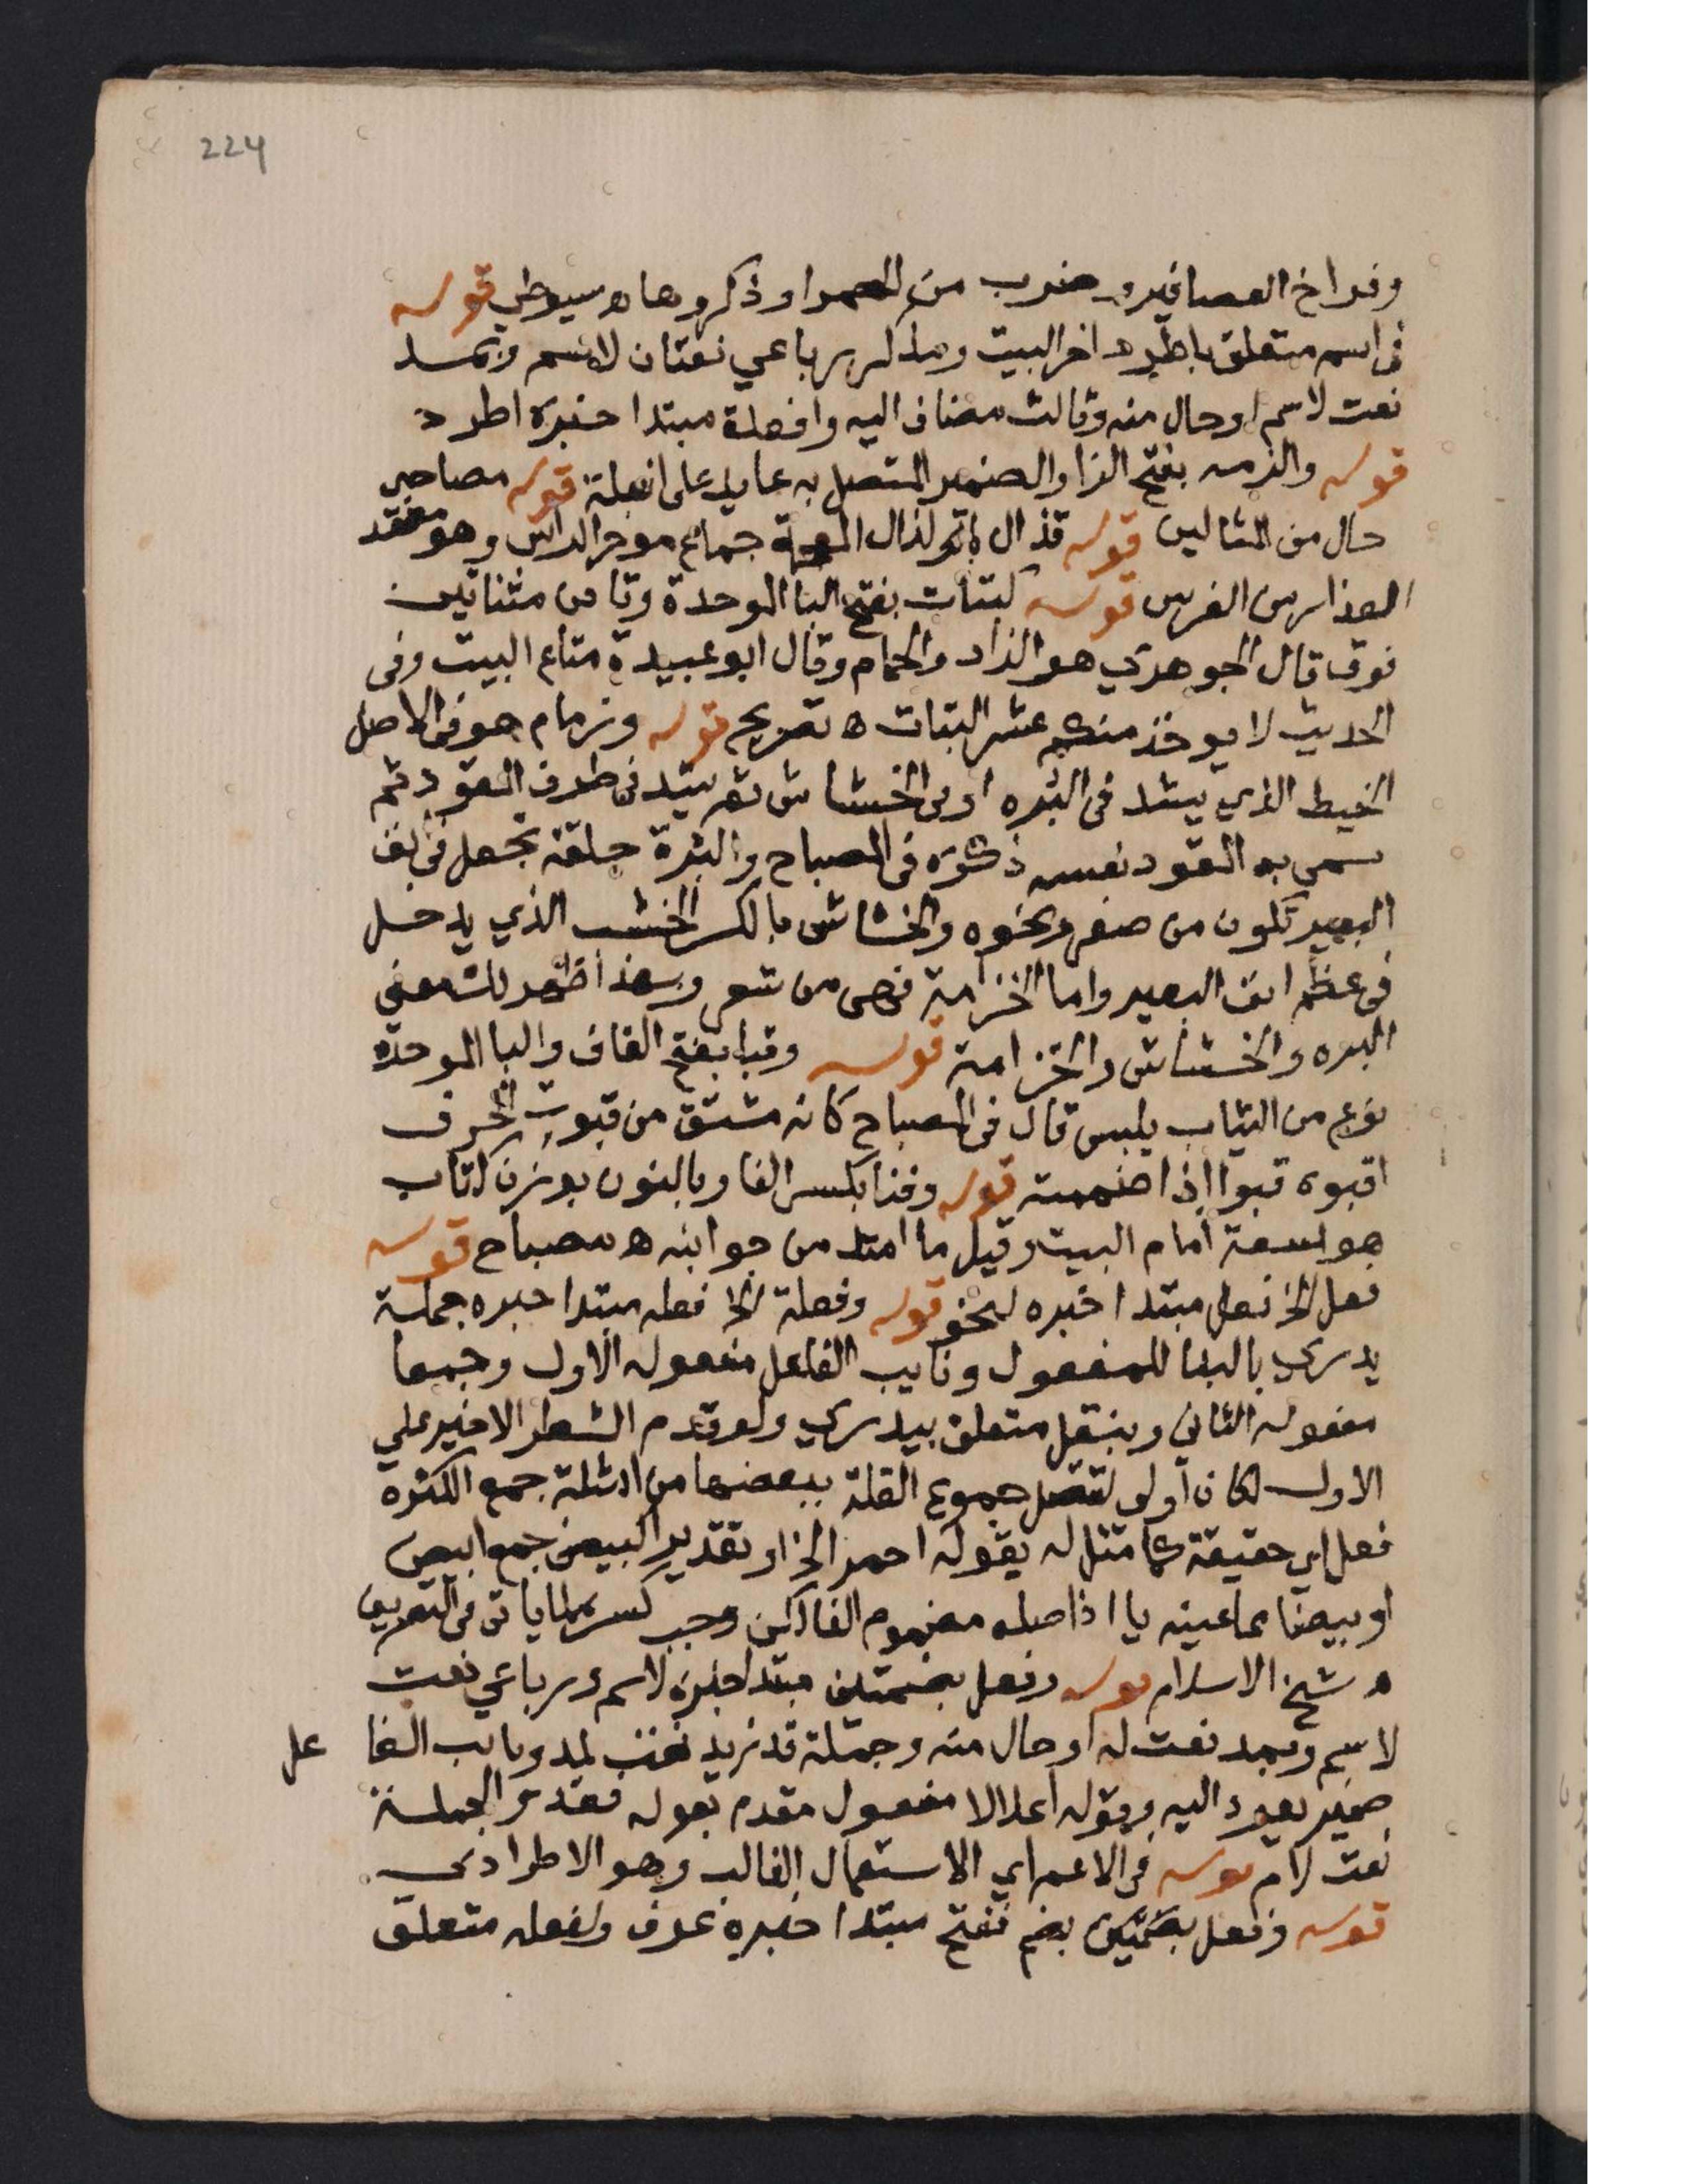 224
وفراخ العصافير وضرب من الحمر اوذكروها ه سيوطي قوله
فى اسم متعلق باطرد اخر البيت ومذكر رباعي نعتان لاسم وبمد
نعت لاسم او حال منه وثالث مضاف اليه وافعلة مبتدا خبره اطرد
قوله والزمه بفتح الزا والضمير المتصل به عايد على افعلة قوله مصاحبي
حال من المثالين قوله قذال بالذال المعجمة جماع موخر الراس وهو معقد
العذار من الفرس قوله كبتات بفتح البا الموحدة وتاين مثناتين
فوق قال الجوهري هو الزاد والجهاز وقال ابو عبيدة متاع البيت وفى
الحديث لا يوخذ منكم عشر البتات ه تصريح قوله وزمام هو فى الاصل
الخيط الذي يشد فى البره او فى الخشاش ثم يشد فى طرف المقود ثم
سمى به المقود نفسه ذكره فى المصباح والبرة حلقة تجعل فى انف
البعير تكون من صفر ونحوه والخشاش بالكسر الخشب الذي يدخل
فى عظم انف البعير واما الخزامة فهى من شعر وبهذا ظهر لك معنى
البره والخشاش والخزامة قوله وقبا بفتح القاف والبا الموحدة
نوع من الثياب يلبس قال فى المصباح كانه مشتق من قبوت الحرف
اقبوه قبوا اذا ضممته قوله وفنا بكسر الفا وبالنون بوزن كتاب
هو لسعة امام البيت وقيل ما امتد من جوانبه ه مصباح قوله
فعل الخ فعل مبتدا خبره لنحو قوله وفعلة الخ فعله مبتدا خبره جملة
يدري بالبنا للمفعول ونايب الفاعل مفعوله الاول وجمعا
مفعوله الثانى وبنقل متعلق بيدري ولو قدم الشطر الاخير على
الاول لكان اولى لتتصل جموع القلة ببعضها من امثلة جمع الكثرة
فعل اي حقيقة كما مثل له بقوله احمر الخ او تقدير اكبيض جمع ابيض
او بيضا مما عينه يا اذ اصله مضموم الفا لكن وجب كسرها لما ياتى فى التصريف
ه شيخ الاسلام قوله وفعل بضمتين مبتدا خبره لاسم ورباعي نعت
لاسم وبمد نعت له او حال منه وجملة قد زيد نعت لمد ونايب الفا عل
ضمير يعود اليه وقوله اعلالا مفعول مقدم بقوله فقد والجملة
نعت لام قوله فى الاعم اي الاستعمال الغالب وهو الاطرادى
قوله وفعل بضم ففتح مبتدا خبره عرف ولفعله متعلق